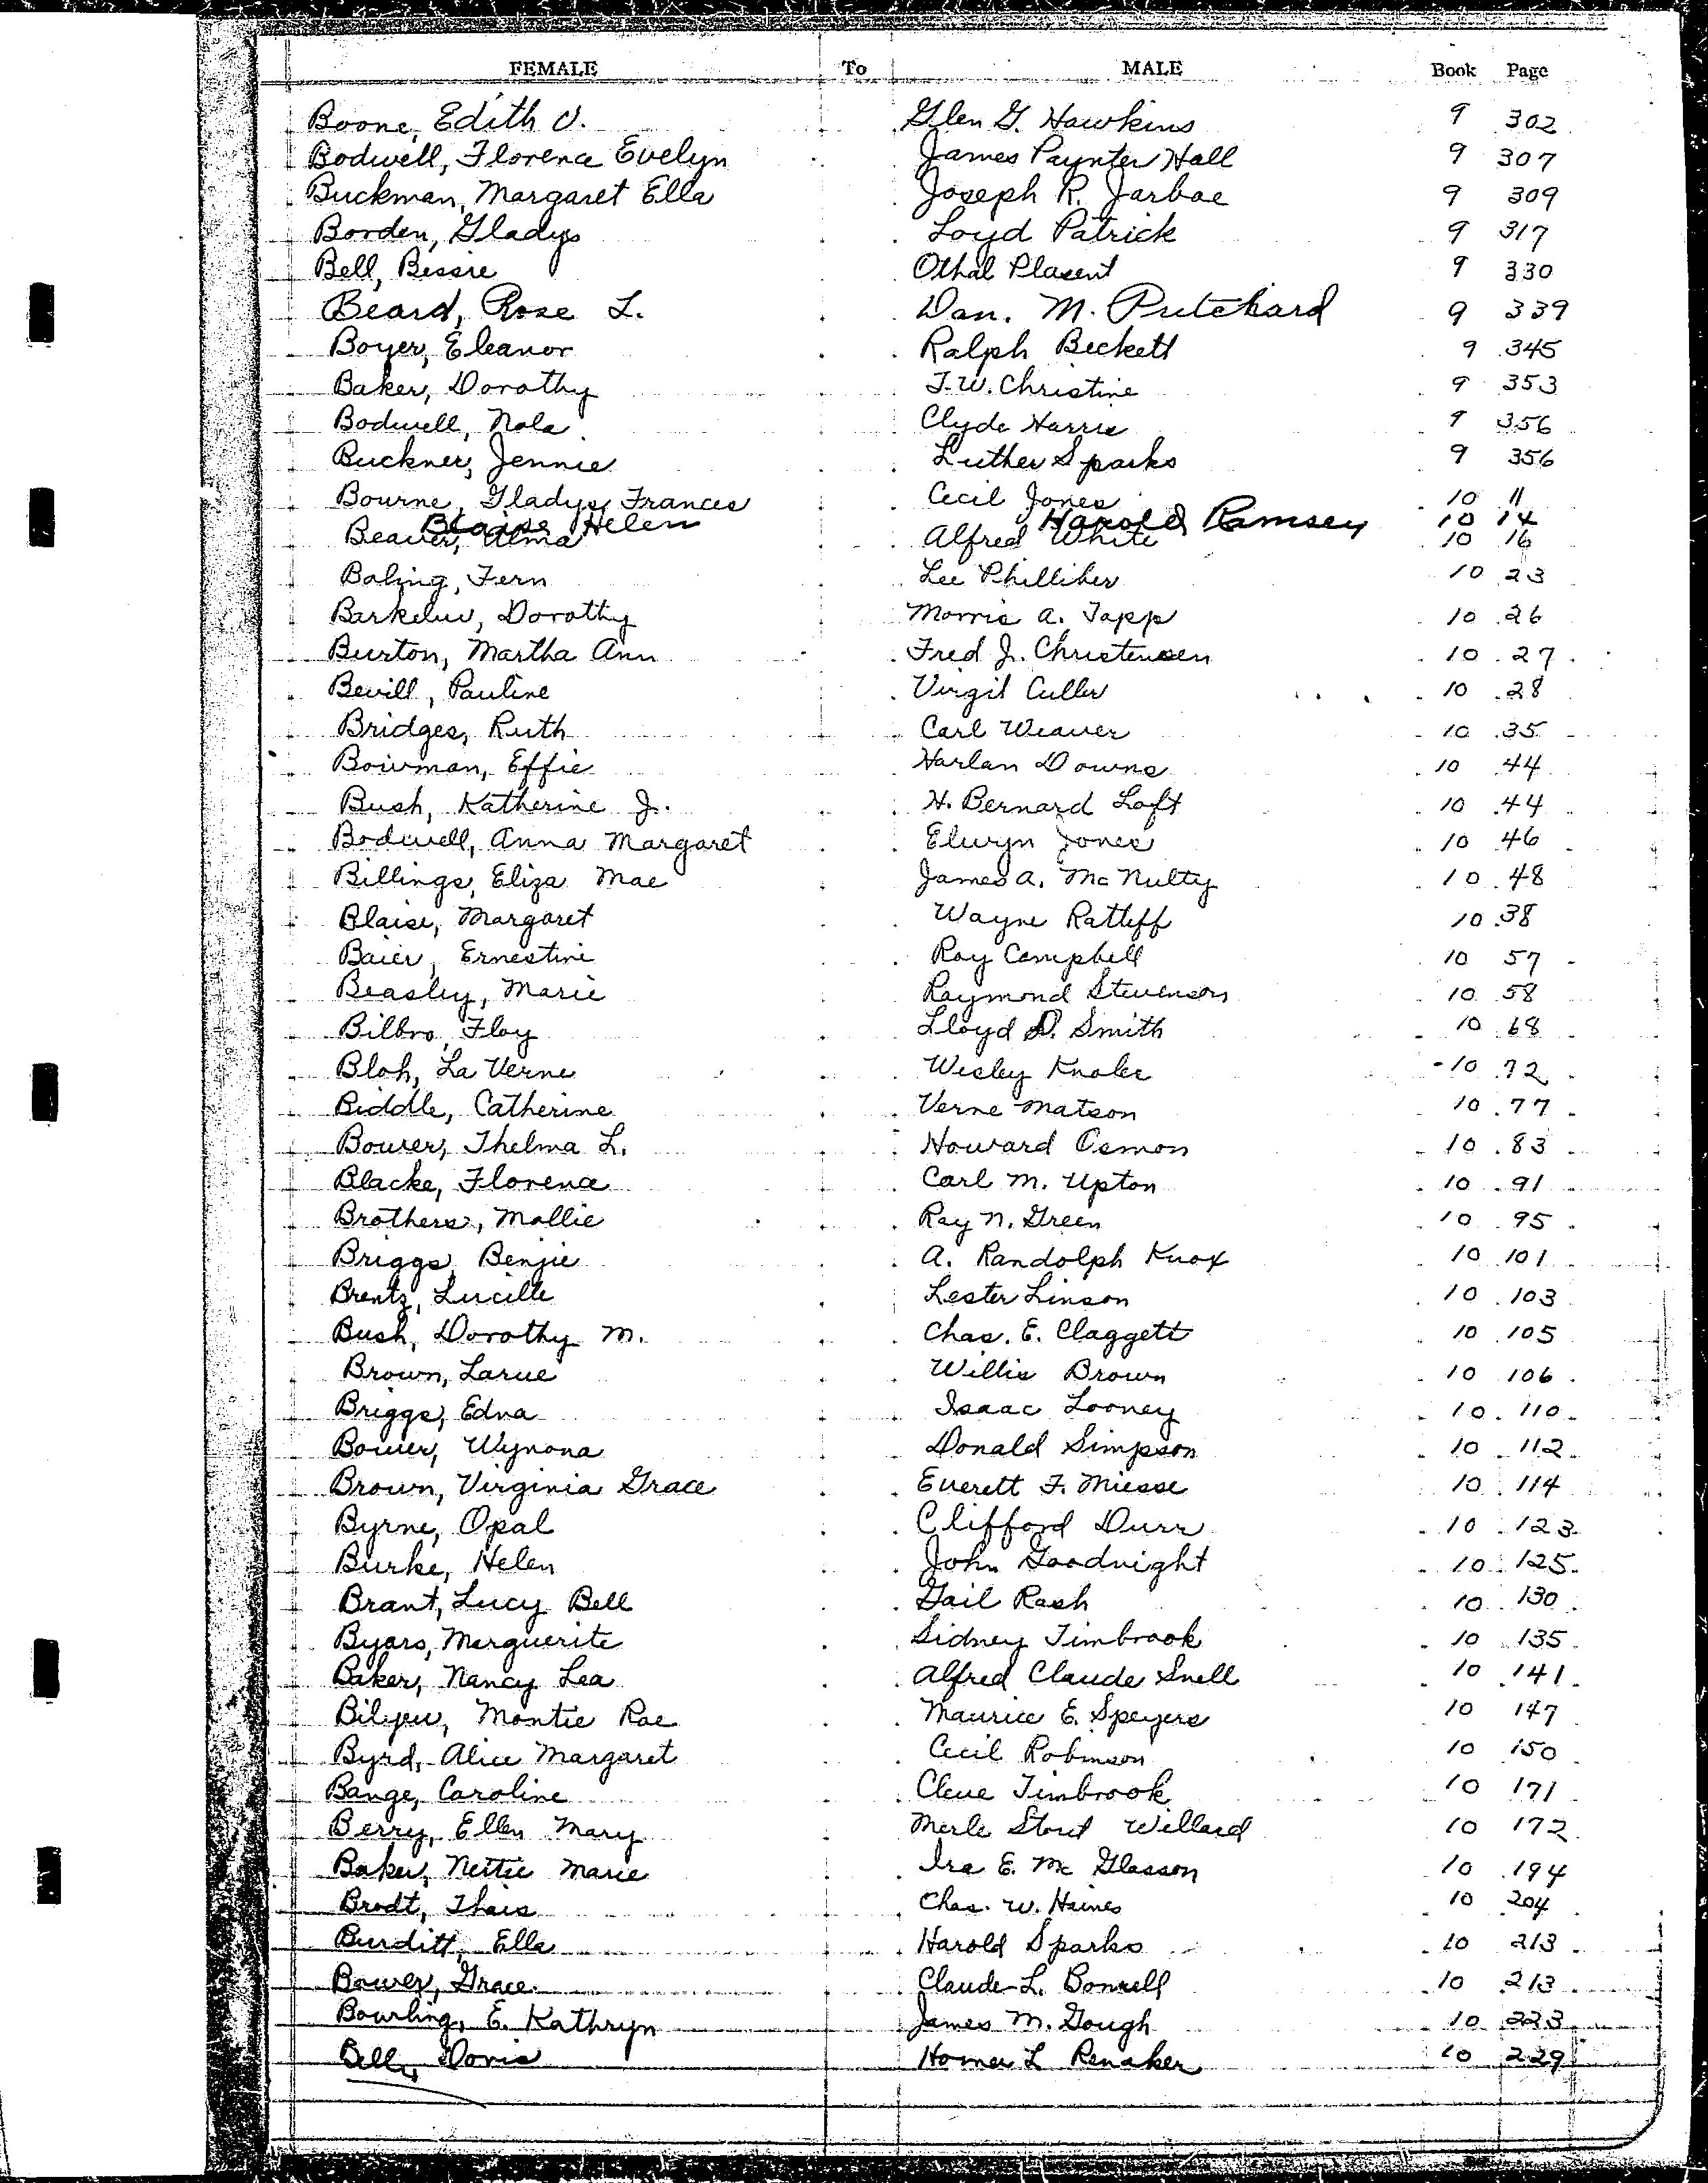 FEMALE To MALE Book Page
Boone, Edith V. Glen G. Hawkins 9 302
Bodwell, Florence Evelyn James Paynter Hall 9 307
Buckman, Margaret Ella Joseph R. Jarboe 9 309
Borden, Gladys Loyd Patrick 9 317
Bell, Bessie Othal Plasent 9 330
Beard, Rose L. Dan. M. Pritchard 9 339
Boyer, Eleanor Ralph Beckett 9 345
Baker, Dorothy T.W. Christine 9 353
Bodwell, Nola Clyde Harris 9 356
Buckner, Jennie Luther Sparks 9 356
Bourne, Gladys Frances Cecil Jones 10 11
Blaise Helen Harold Ramsey 10 14
Beaver, Alma Alfred White 10 16
Boling, Fern Lee Philliber 10 23
Barkelew, Dorothy Morris A. Tapp 10 26
Burton, Martha Ann Fred J. Christensen 10 27
Bevill, Pauline Virgil Culler 10 28
Bridges, Ruth Carl Weaver 10 35
Bowman, Effie Harlan Downs 10 44
Bush, Katherine J. H. Bernard Loft 10 44
Bodwell, Anna Margaret Elwyn Jones 10 46
Billings, Eliza Mae James A. McNulty 10 48
Blaise, Margaret Wayne Ratliff 10 38
Baier, Ernestine Roy Campbell 10 57
Beasley, Marie Raymond Stevenson 10 58
Bilbro, Floy Lloyd D. Smith 10 68
Bloh, La Verne Wesley Knoles 10 72
Biddle, Catherine Verne Matson 10 77
Bower, Thelma L. Howard Osmon 10 83
Blacke, Florence Carl M. Upton 10 91
Brothers, Mollie Ray N. Green 10 95
Briggs, Benjie A. Randolph Knox 10 101
Brentz, Lucille Lester Linson 10 103
Bush, Dorothy M. Chas. E. Claggett 10 105
Brown, Larue Willis Brown 10 106
Briggs, Edna Isaac Looney 10 110
Bower, Wynona Donald Simpson 10 112
Brown, Virginia Grace Everett F. Miesse 10 114
Byrne, Opal Clifford Durr 10 123
Burke, Helen John Goodnight 10 125
Brant, Lucy Bell Gail Rash 10 130
Byars, Marguerite Sidney Timbrook 10 135
Baker, Nancy Lea Alfred Claude Snell 10 141
Bilyeu, Montie Rae Maurice E. Speyers 10 147
Byrd, Alice Margaret Cecil Robinson 10 150
Bange, Caroline Cleve Timbrook 10 171
Berry, Ellen Mary Merle Stout Willard 10 172
Baker, Nettie Marie Ira E. McGlasson 10 194
Brodt, Thais Chas. W. Haines 10 204
Burditt, Ella Harold Sparks 10 213
Bower, Grace Claude L. Bonnell 10 213
Bowling, E. Kathryn James M. Gough 10 223
Bell, Doris Homer L Renaker 10 229